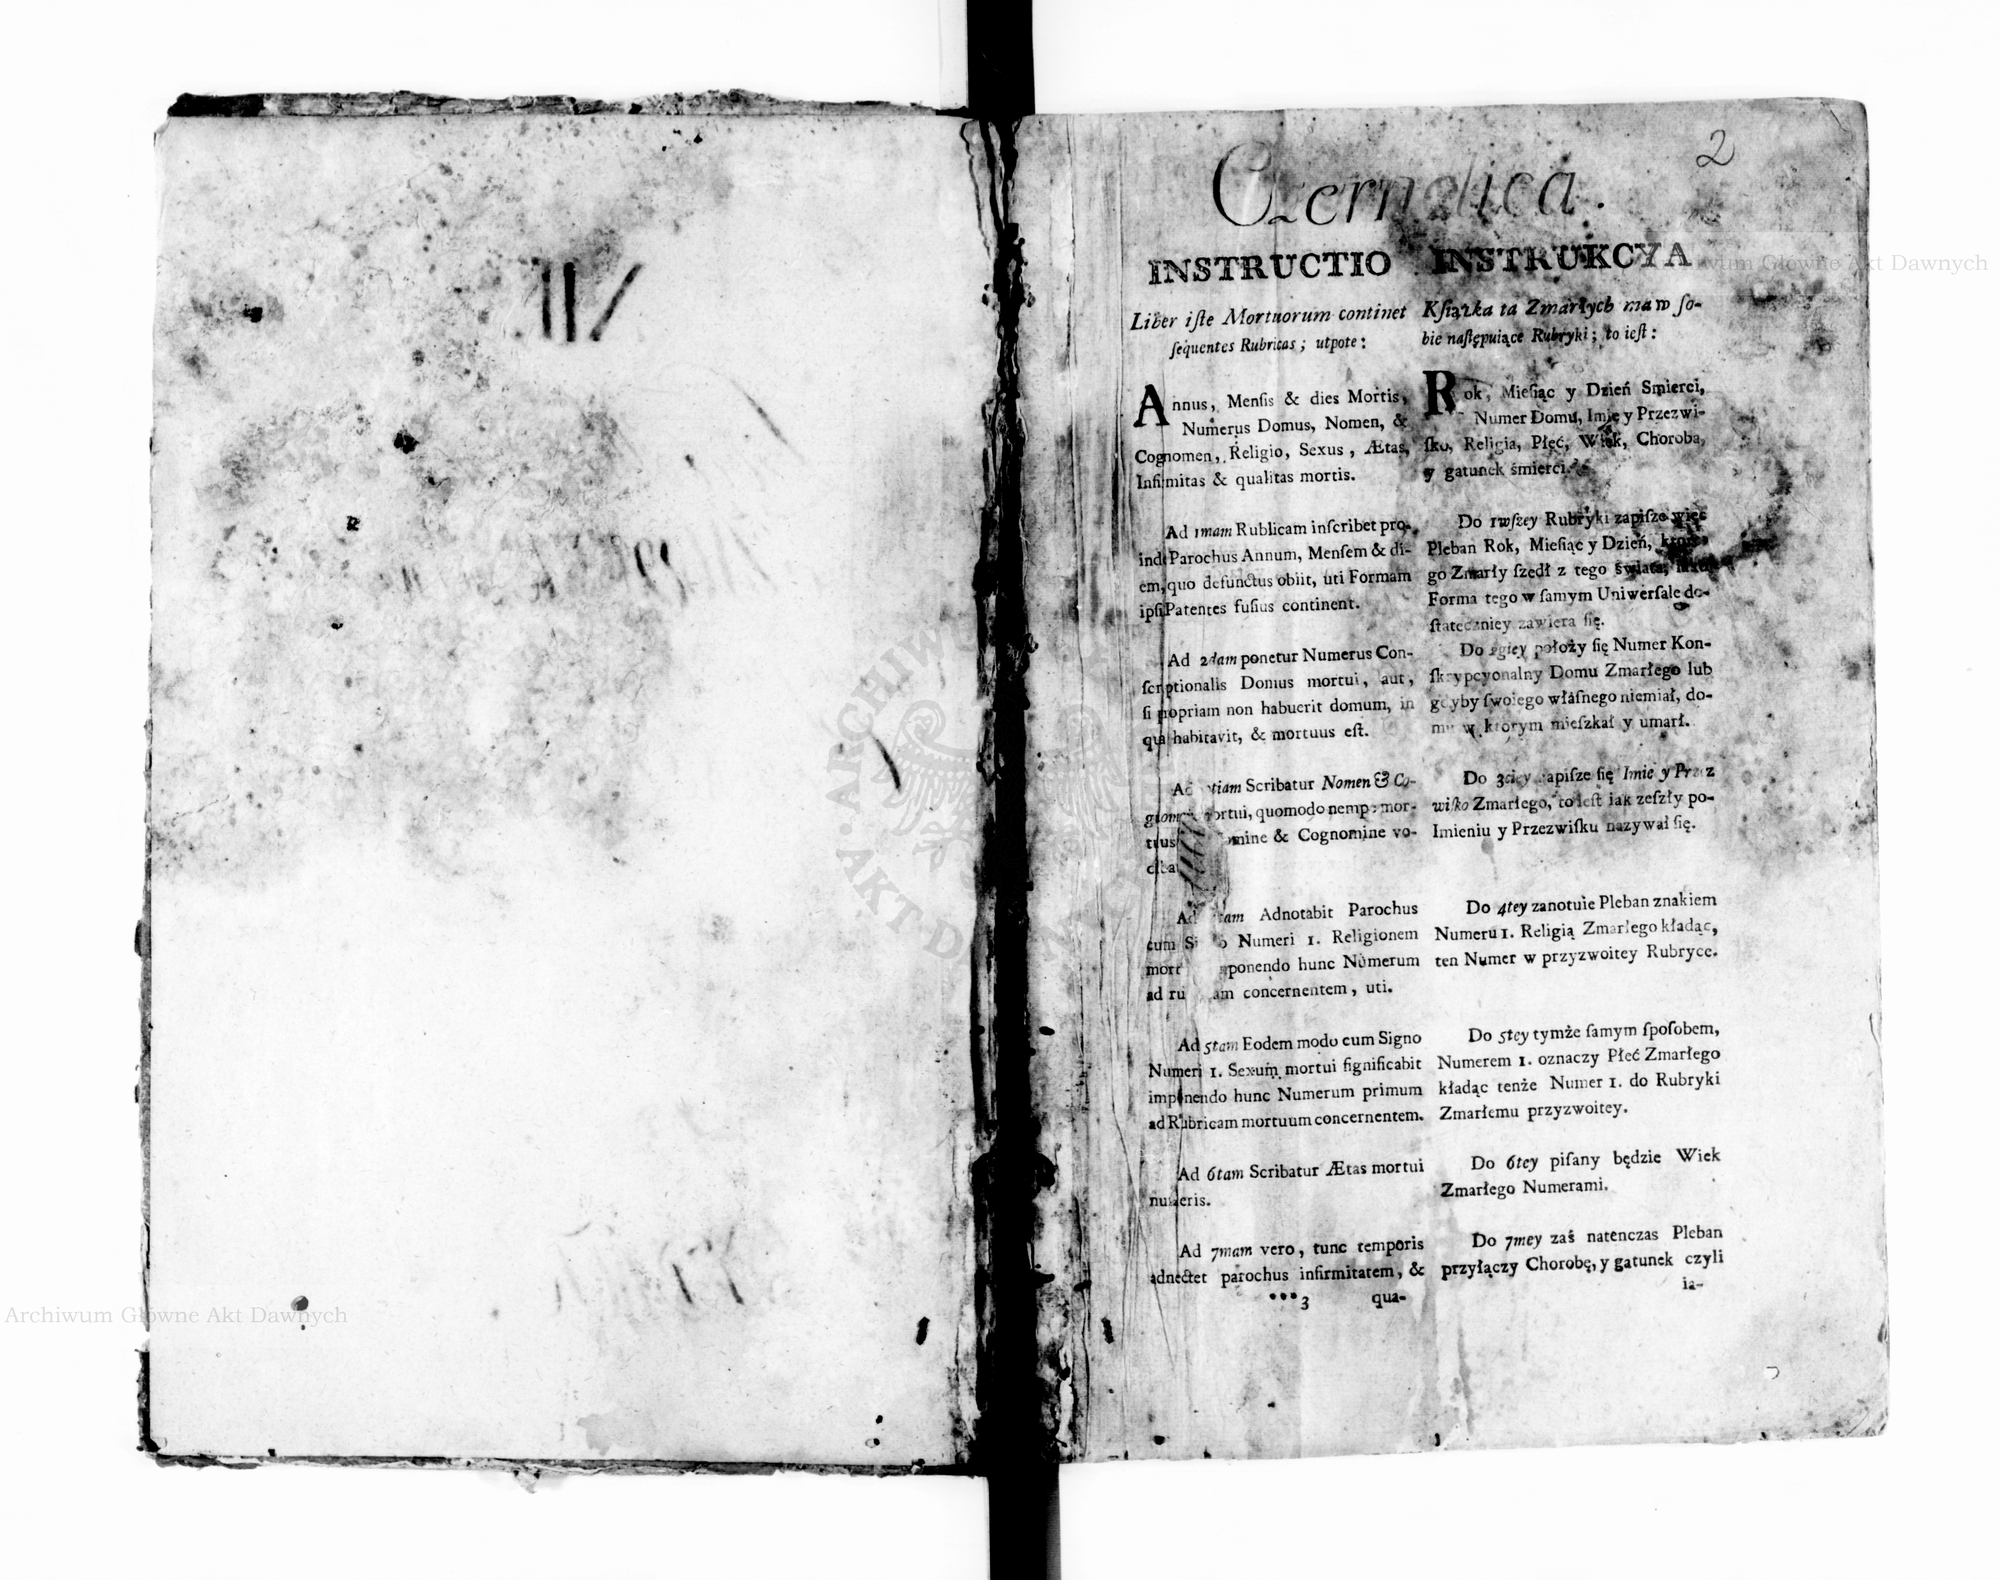 VII.
2
Czernelica.
INSTRUCTIO
Liber iſte Mortuorum continet
ſequentes Rubricas ; utpote :
Annus, Menſis & dies Mortis,
Numerus Domus, Nomen, &
Cognomen, Religio, Sexus, Ætas,
Infirmitas & qualitas mortis.
Ad 1mam Rublicam inſcribet pro-
inde Parochus Annum, Menſem & di-
em, quo defunctus obiit, uti Formam
ipſi Patentes fuſius continent.
Ad 2dam ponetur Numerus Con-
ſcriptionalis Domus mortui, aut,
ſi propriam non habuerit domum, in
qua habitavit, & mortuus eſt.
Ad tiam Scribatur Nomen & Co-
gnomen mortui, quomodo nemp: mor-
tuus Nomine & Cognomine vo-
Ad tam Adnotabit Parochus
cum Numeri 1. Religionem
ponendo hunc Numerum
ad concernentem, uti.
Ad 5tam Eodem modo cum Signo
Numeri 1. Sexum mortui ſignificabit
imponendo hunc Numerum primum
ad Rubricam mortuum concernentem.
Ad 6tam Scribatur Ætas mortui
numeris.
Ad 7mam vero, tunc temporis
adnectet parochus infirmitatem, &
***3 qua-
INSTRUKCYA
Kſiążka ta Zmarłych ma w ſo-
bie naſtępuiące Rubryki; to ieſt :
Rok, Mieſiąc y Dzień Smierci,
Numer Domu, Imie y Przezwi-
ſko, Religia, Płęć, Wiek, Choroba,
y gatunek śmierci.
Do 1wſzey Rubryki zapiſze więc
Pleban Rok, Mieſiąc y Dzień, ktore-
go Zmarły ſzedł z tego świata,
Forma tego w ſamym Uniwerſale do-
ſtateczniey zawiera ſię.
Do 2giey położy ſię Numer Kon-
ſkrypcyonalny Domu Zmarłego lub
gdyby ſwoiego właſnego niemiał, do-
mu w ktorym mieſzkał y umarł.
Do 3ciey zapiſze ſię Imie y Przez
wiſko Zmarłego, to ieſt iak zeſzły po-
Imieniu y Przezwiſku nazywał ſię.
Do 4tey zanotuie Pleban znakiem
Numeru 1. Religią Zmarłego kładąc,
ten Numer w przyzwoitey Rubryce.
Do 5tey tymże ſamym ſpoſobem,
Numerem 1. oznaczy Płeć Zmarłego
kładąc tenże Numer 1. do Rubryki
Zmarłemu przyzwoitey.
Do 6tey piſany będzie Wiek
Zmarłego Numerami.
Do 7mey zaś natenczas Pleban
przyłączy Chorobę, y gatunek czyli
ia-
Archiwum Główne Akt Dawnych